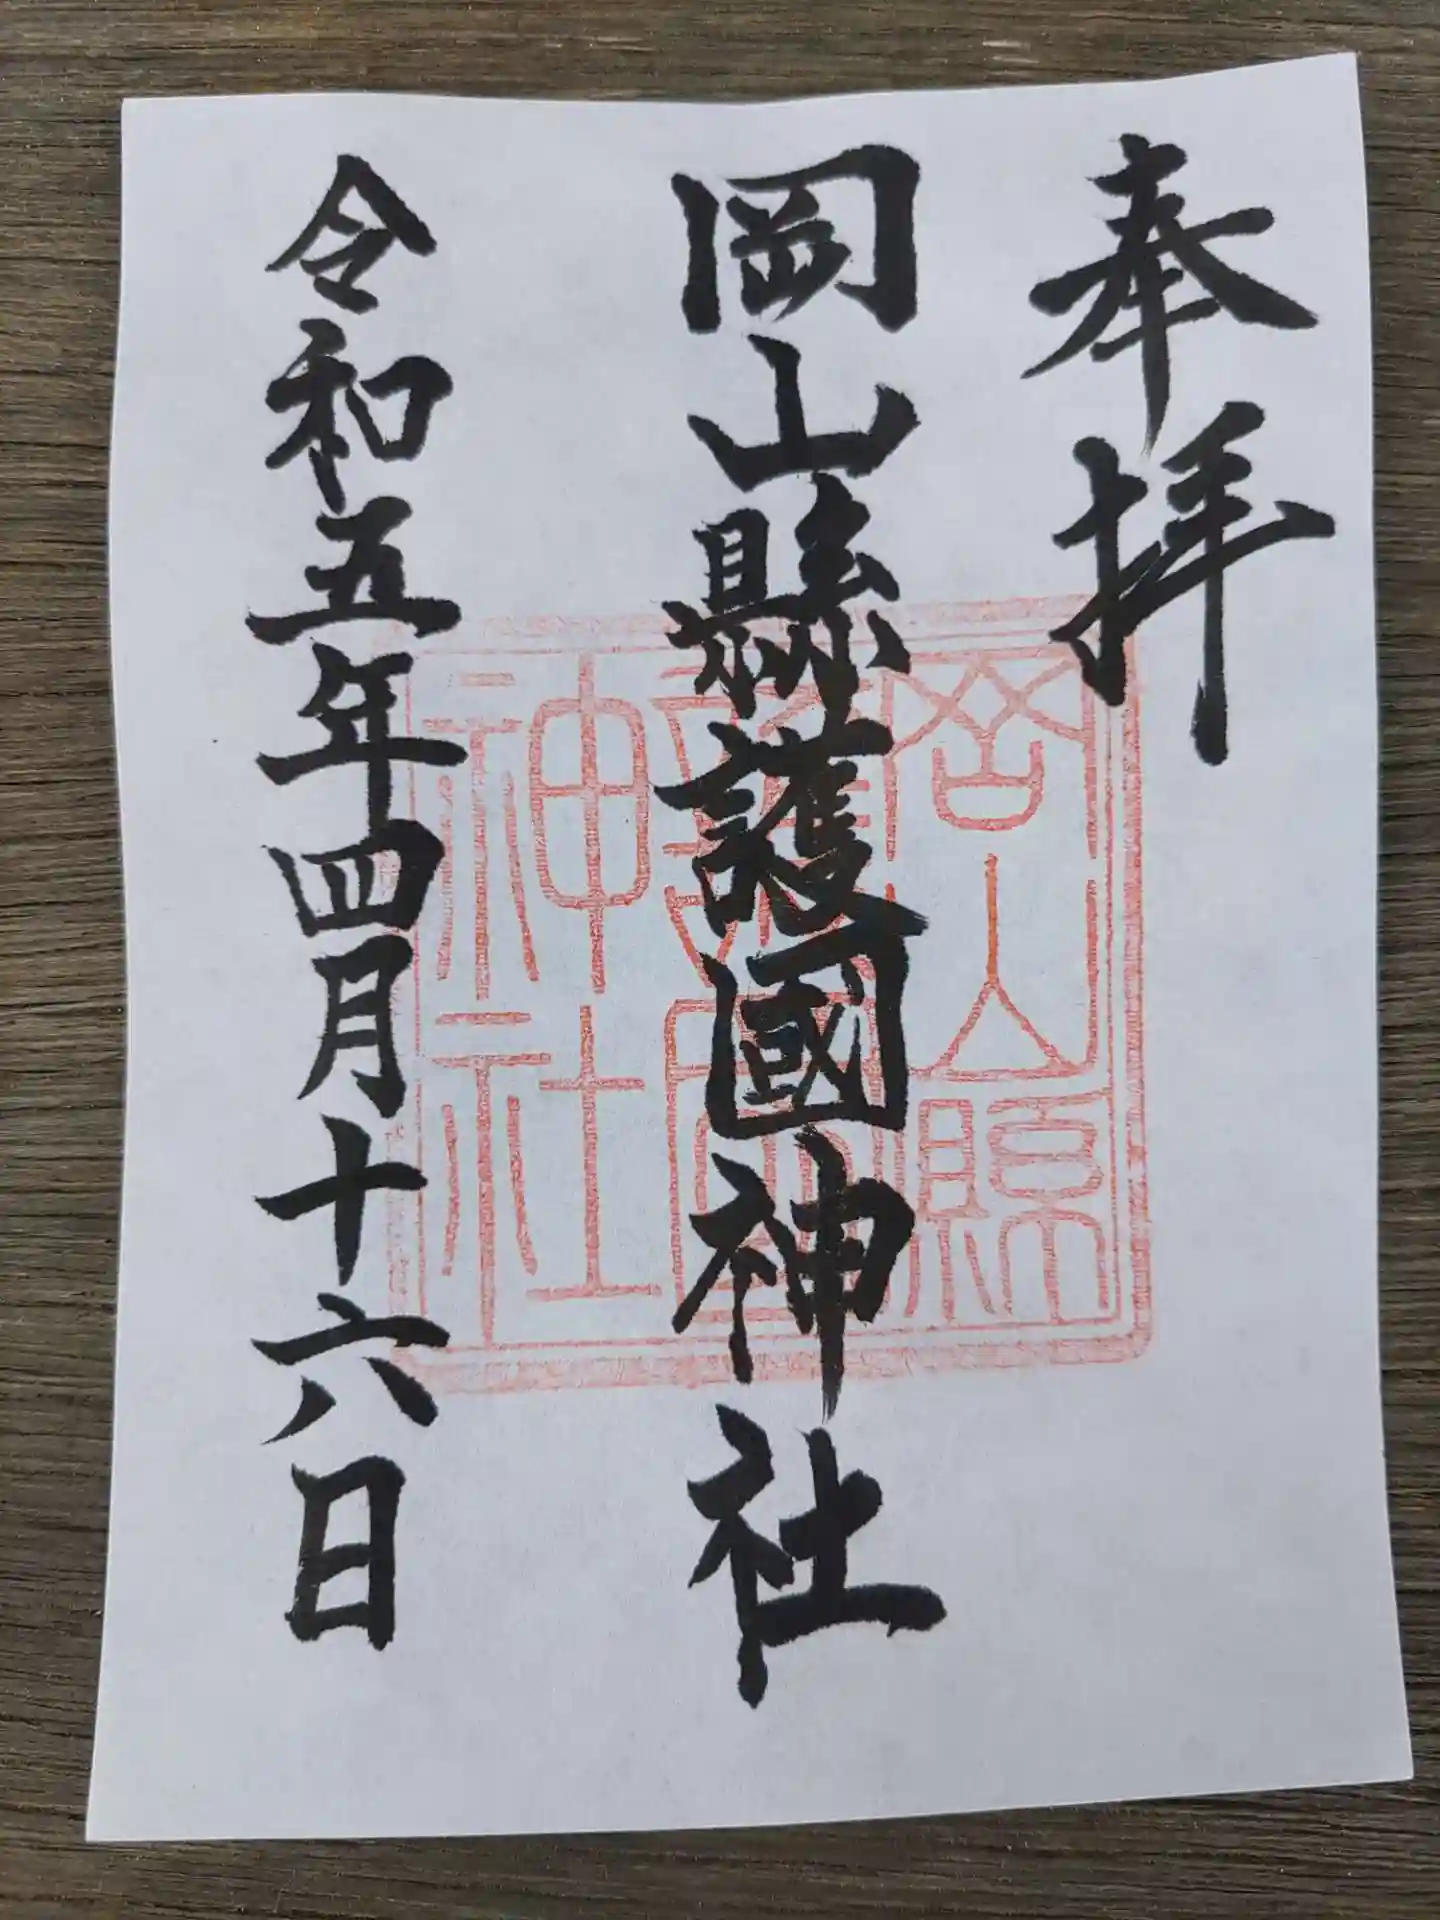 奉拝
岡山縣護國神社
岡山縣護國神社
令和五年四月十六日